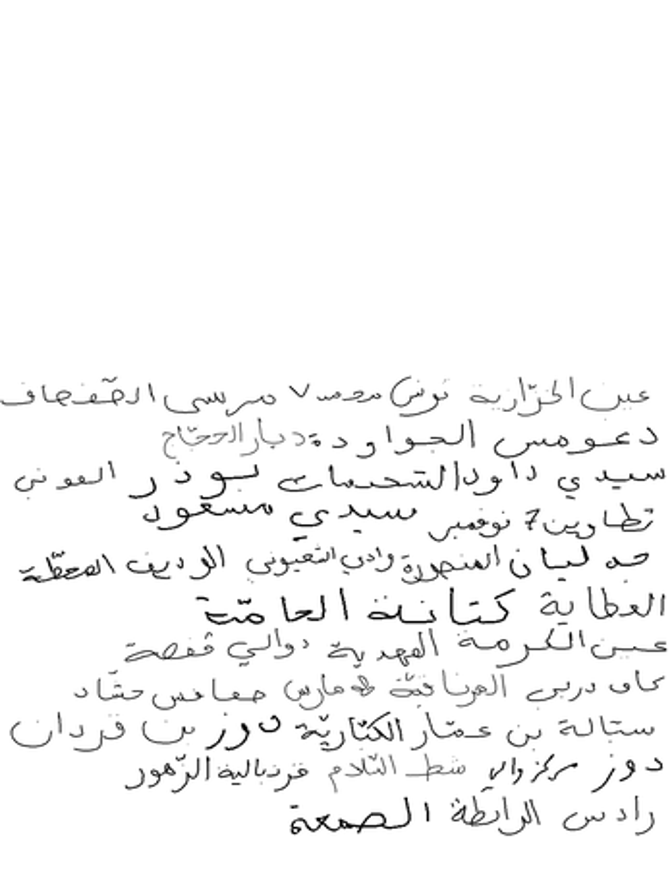 عين الخزارية تونس سيدي الصفصاف
دعومس الجواودة ديار الحجّاج
سيدي داود الشحيمات بوذر العوني
تطاوين 7 نوفمبر سيدي مسعود
المنصورة وادي التعبوني الوديف المحطّة
العطاية كتانة الحامّة
عين الكرمة المهدية دوالي قفصة
العرنافيّة مارس صفاقس حشاد
ستالة بن عمّار الكتّاريّة دوز بن قردان
دوز مركز والي شط السّلام قرنبالية الزّهور
رادس الرابطة الصمعة